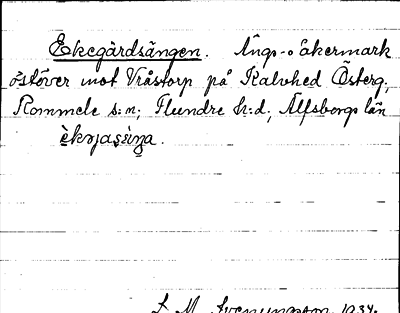 Ekegårdsängen. Ängs- o åkermark
öståver mot Vråstorp på Kalvhed Österg,
Rommele s:n; Flundre h:d; Älfsborgs län
S. M. Svenungsson 1934.